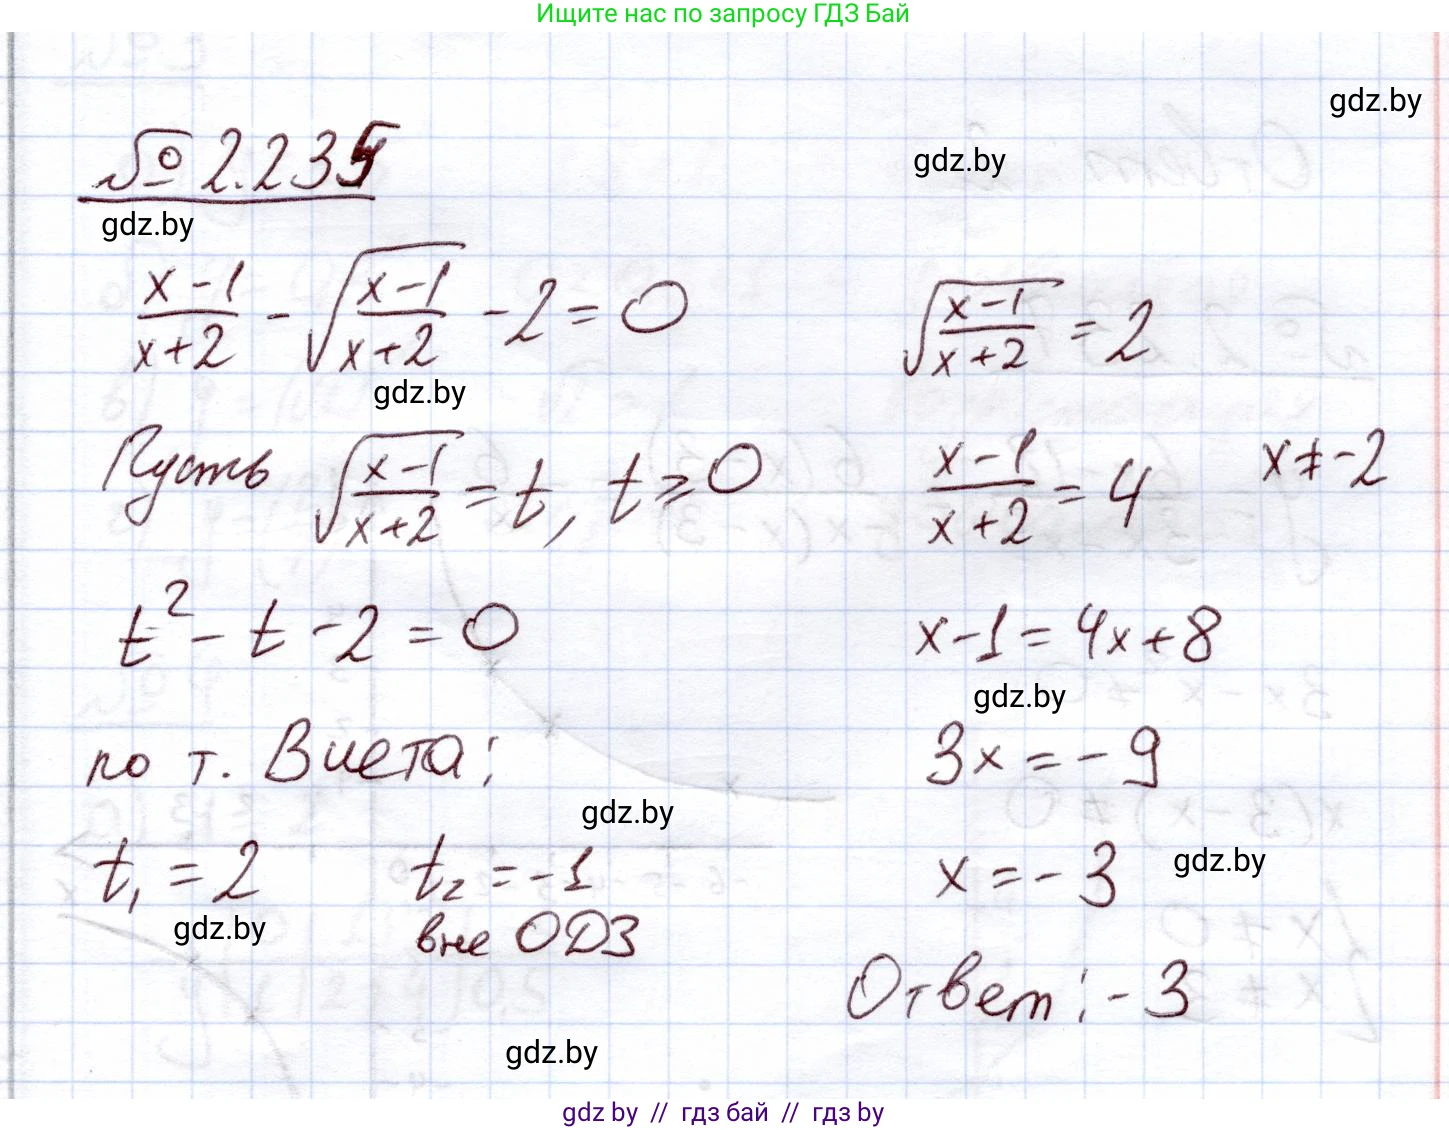 Ищите нас по запросу ГДЗ Бай
gdz.by
gdz.by
№ 2.235
gdz.by
(x-1)/(x+2) - √((x-1)/(x+2)) - 2 = 0
gdz.by
Пусть √((x-1)/(x+2)) = t, t ≥ 0
t² - t - 2 = 0
по т. Виета:
gdz.by
t₁ = 2 t₂ = -1
gdz.by
вне ОДЗ
gdz.by
√((x-1)/(x+2)) = 2
(x-1)/(x+2) = 4 x ≠ -2
x - 1 = 4x + 8
gdz.by
3x = -9
x = -3
gdz.by
Ответ: -3
gdz by // гдз бай // гдз by